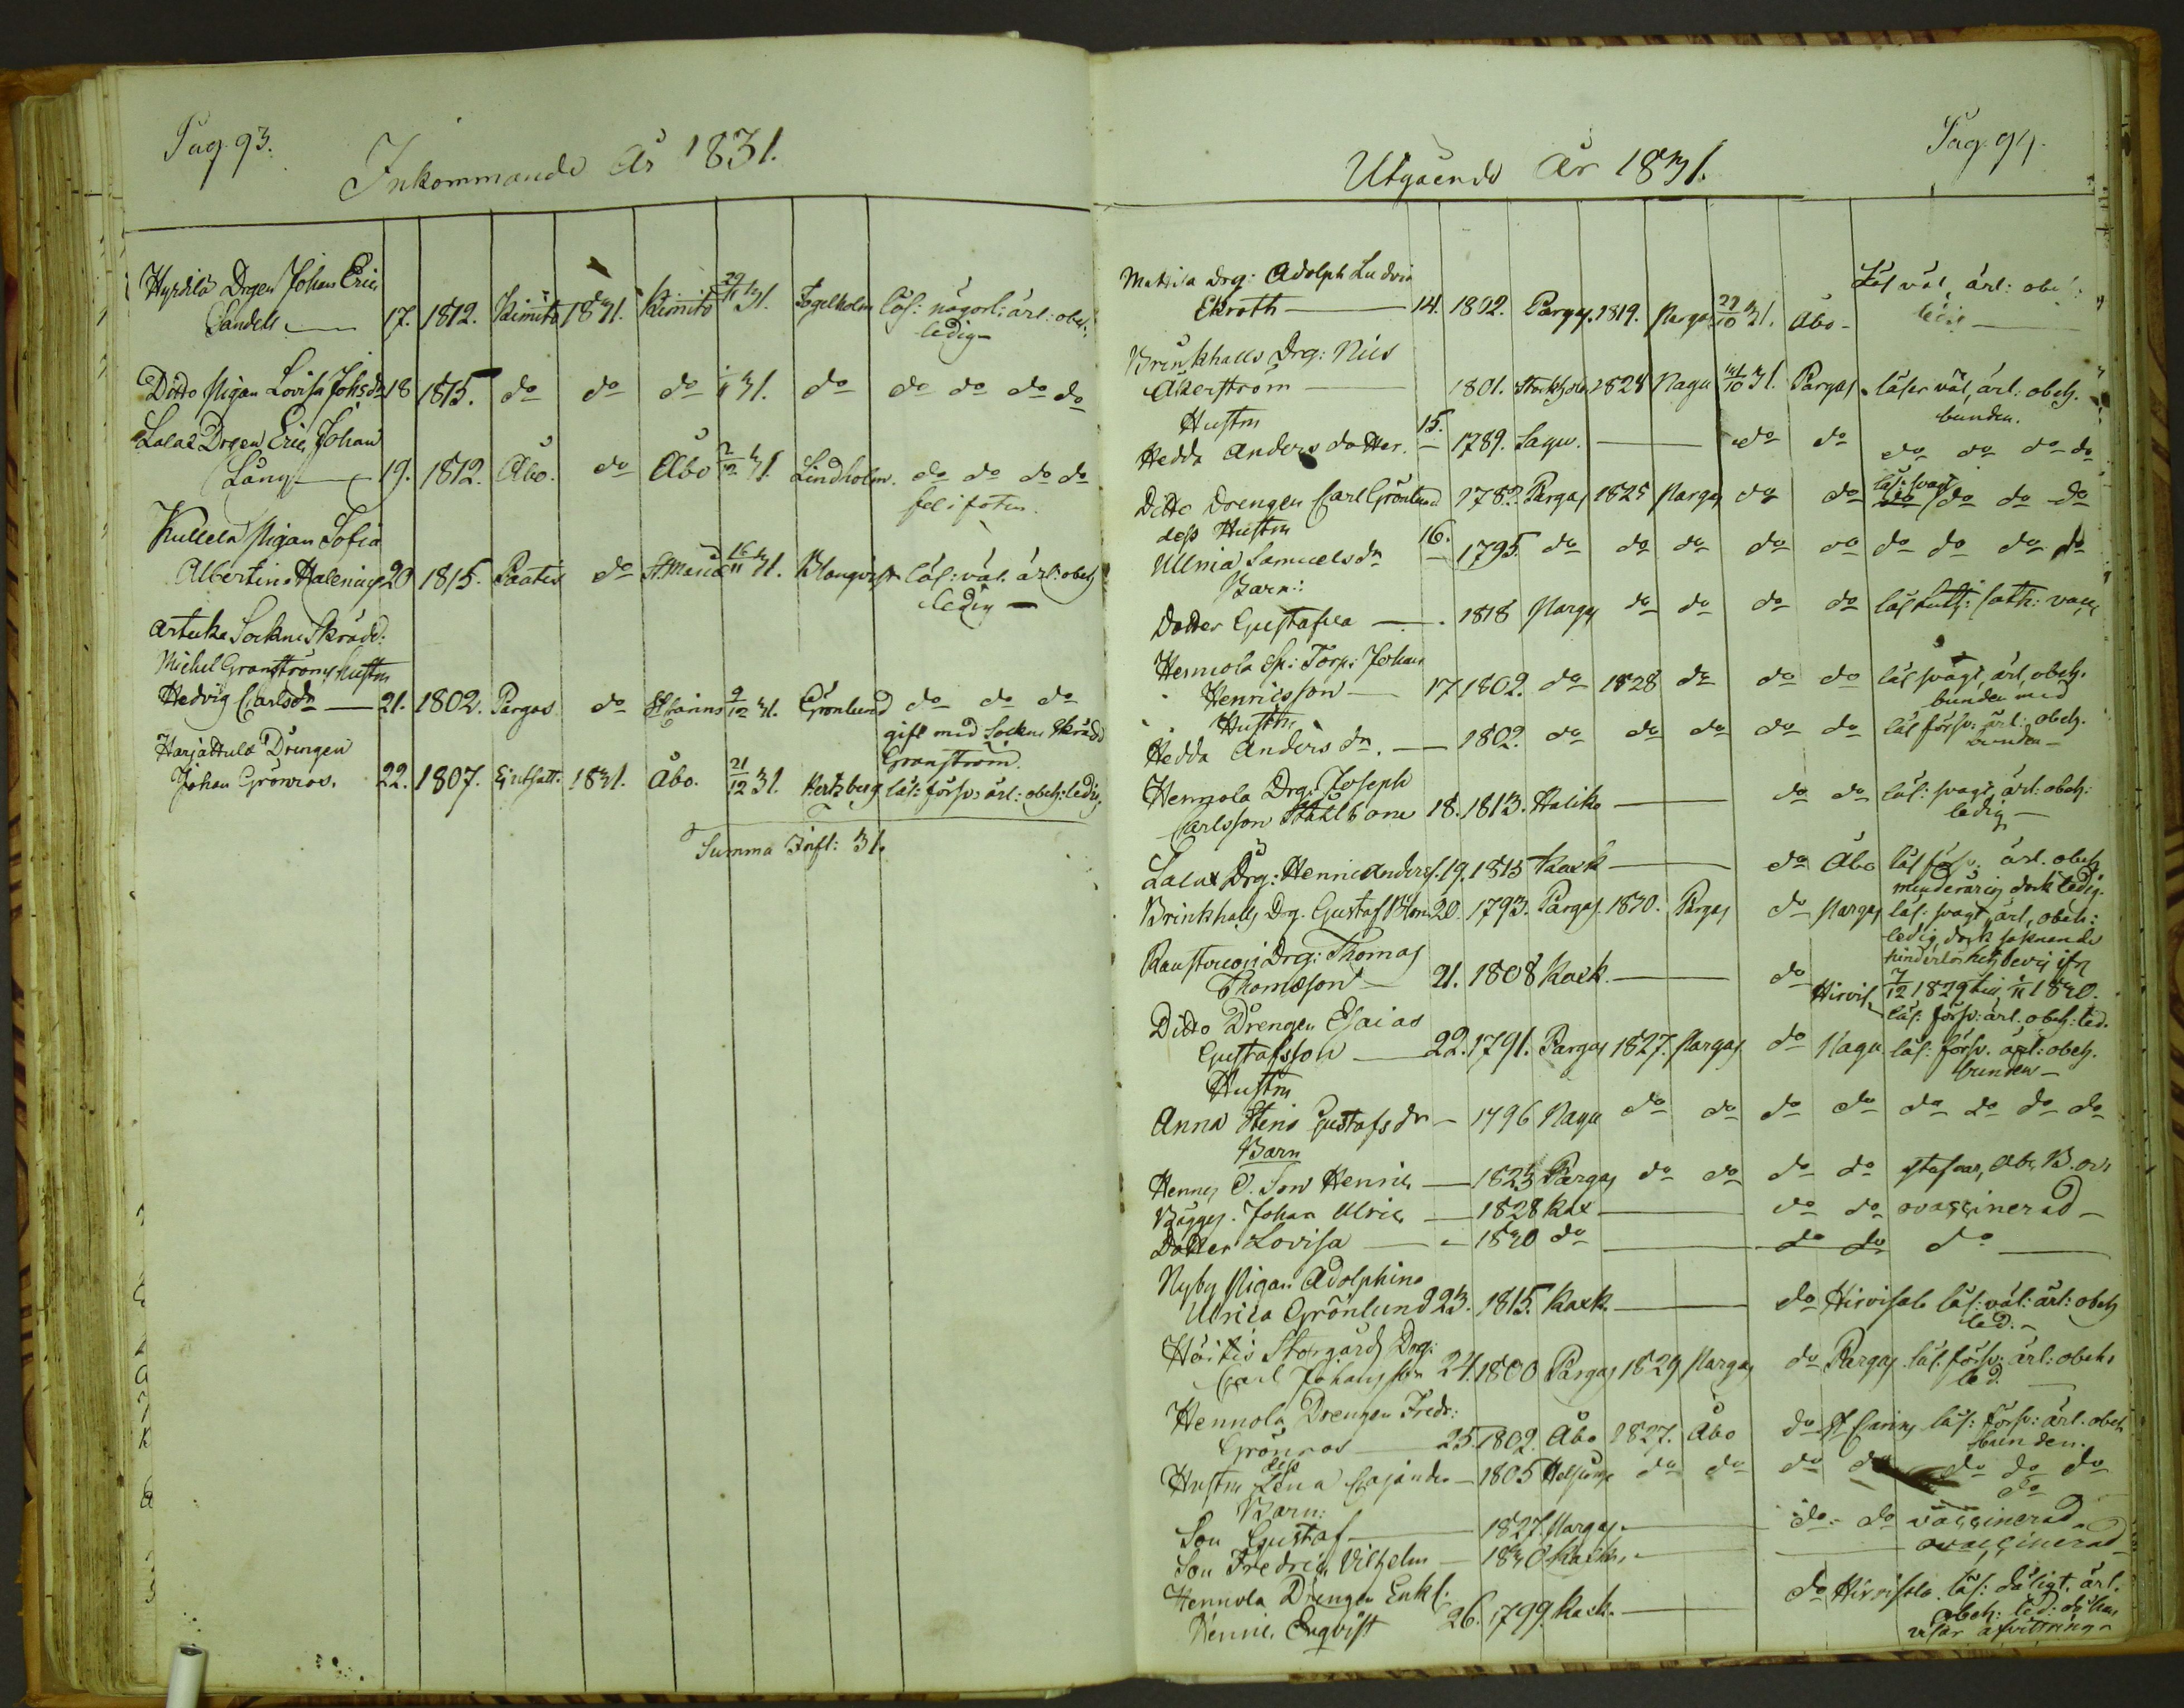 Pag. 93.
Inkommande År 1831.
Hyrdilä Drgen Johan Eric
Sandell 17. 1812. Kimito 1831. Kimito 29/11 31. Fogelholm läs: någorl: ärl: obeh:
ledig
Ditto Pigan Lovisa Johsdr 18 1815. do do do 1/11 31. do do do do do
Lalax Drgen Eric Johan
Lång 19. 1812. Åbo. do Åbo 2/12 31. Lindholm. do do do do
fel i foten.
Kullela Pigan Sofia
Albertina Halenius 20 1815. Raatis do St Maria 16/11 31. Blomqvist läs: väl. ärl: obeh
ledig
Artuka Sockne Skrädd:
Michel Granströms hustru
Hedvig Carlsdr 21. 1802. Pargas do St Carins 9/12 31. Grönlund do do do
gift med Sockne Skrädd
Granström.
Harjattula Drengen
Johan Grönroos. 22. 1807. 1831. Åbo. 21/12 31. Hertzberg läs: försv: ärl: obeh: ledig
Summa Infl: 31.
Pag. 94.
Utgående År 1831.
Mattila Drg: Adolph Ludvig
Ekroth 14. 1802. Pargas. 1819. Pargas 29/10 31. Åbo Läs väl, ärl: obeh:
ledig
Brinkhalls Drg: Nils
Åkerström 1801. Stockholm 1828 Nagu 31/10 31. Pargas läser väl, ärl: obeh.
bunden.
Hustru
Hedda Anders dotter. 15. 1789. Sagu. do do do do do do
Ditto Drengen Carl Grönlund 1782. Pargas 1825 Pargas do do läs: svagt do do do
dess Hustru
Ullrica Samuelsdr 16. 1795. do do do do do do do do do
Barn:
Dotter Gustafva 1818 Pargas do do do do
Hennola Sp: Torp: Johan
Henricsson 17 1802. do 1828 do do do läs svagt, ärl, obeh.
bunden med
Hustru
Hedda Anders dr. 1802. do do do do do läs försv: ärl: obeh.
bunden
Hennola Drg: Joseph
Carlsson Stahlbom 18. 1813. Haliko do do läs: svagt, ärl: obeh:
ledig
Lalax Drg: Henric Anders. 19. 1815 Kaxk do Åbo läs försv. ärl. obeh
minderårig dock ledig.
Brinkhalls Drg. Gustaf Blom 20. 1793. Pargas. 1830. Pargas do Pargas läs: svagt, ärl, obeh:
ledig, dock saknande
hinderlöshets bevis ifrån
7/12 1829 till 1/11 1830.
Drg: Thomas
Thomasson 21. 1808 Kaxk. do Hirvis. läs: försv: ärl. obeh: led.
Ditto Drengen Esaias
Gustafsson 22. 1791. Pargas 1827. Pargas do Nagu läs: försv. ärl: obeh.
bunden
Hustru
Anna Stina Gustafs dr 1796 Nagu do do do do do do do do
Barn
Hennes O. Son Henric 1823 Pargas do do do do
Bägges. Johan Ulric 1828 Kax do do ovaccinerad
Dotter Lovisa 1830 do do do do
Nyby Pigan Adolphina
Ulrica Grönlund 23. 1815. Kaxk. do Hirvisalo läs: väl: ärl: obeh
led.
Höitis Storgårds Drg:
Carl Johansson 24. 1800 Pargas 1829 Pargas do Pargas läs. försv: ärl: obeh:
led.
Hennola Drengen Fredr:
Grönroos 25. 1802. Åbo 1827. Åbo do St Carins läs: försv: ärl. obeh
bunden.
dess
Hustru Lena Cajander 1805 Helsinge do do do do do do do
do
Barn:
Son Gustaf 1827. Pargas. do do vaccinerad
Son Fredric Vilhelm 1830 Kaxk. ovaccinerad
Hennola Drengen Enkl.
Henric Enqvist 26. 1799. Kaxk. do Hirvisalo. läs: dåligt. ärl.
obeh: led: då han
visar afvittring